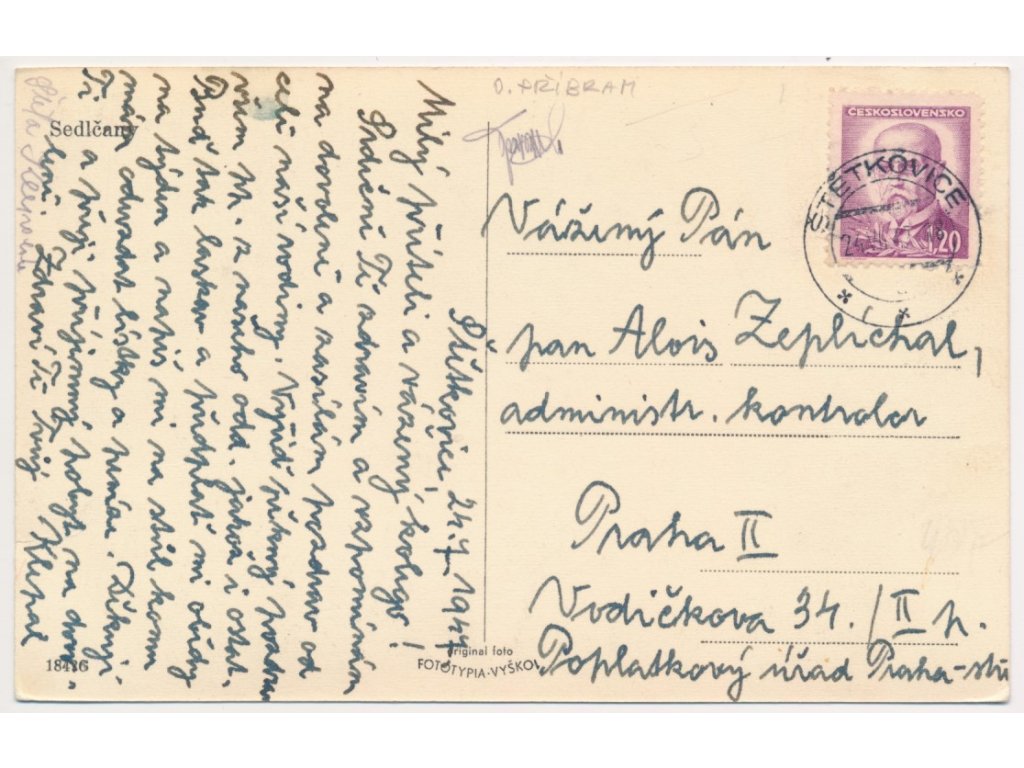 Sedlčany
O. PŘÍBRAM
ČESKOSLOVENSKO
1,20
ŠTĚTKOVICE
Štětkovice, 24.7. 1947
Milý příteli a vážený kolego!
Srdečně Tě zdravím a vzpomínám
na dovolené a zasílám pozdrav od
celé naší rodiny. Vyřiď pěkný pozdrav
všem př. z našeho odd. jakož i ostat.
Buď tak laskav a předplať mi obědy
na týden a napiš mi na stůl komu
mám odvádět lístky a peníze. Děkuji
Ti a přeji příjemný pobyt na dovo-
lené. Zdraví Tě tvůj
Vážený Pán
pan Alois Zeplichal,
administr. kontrolor
Praha II
Vodičkova 34./II p.
Poplatkový úřad Praha-stř
18426
Original foto
FOTOTYPIA-VYŠKOV